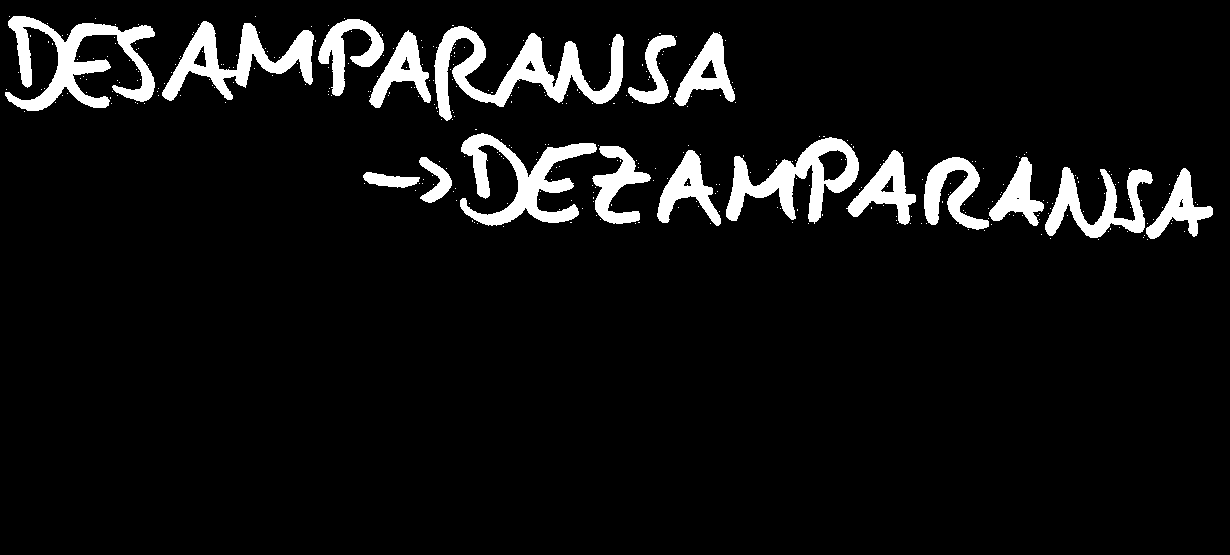 DESAMPARANSA
→DEZAMPARANSA